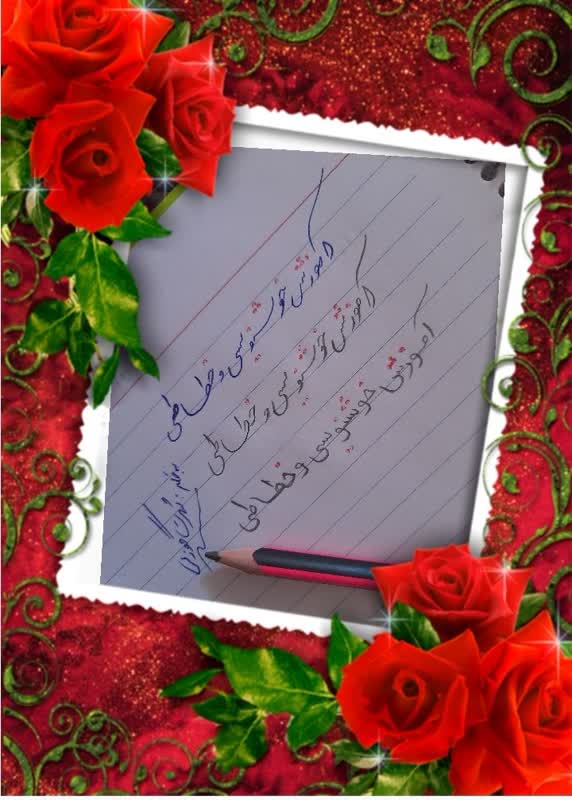 آموزش خوشنویسی و خطاطی
آموزش خوشنویسی و خطاطی
آموزش خوشنویسی و خطاطی
به قلم: